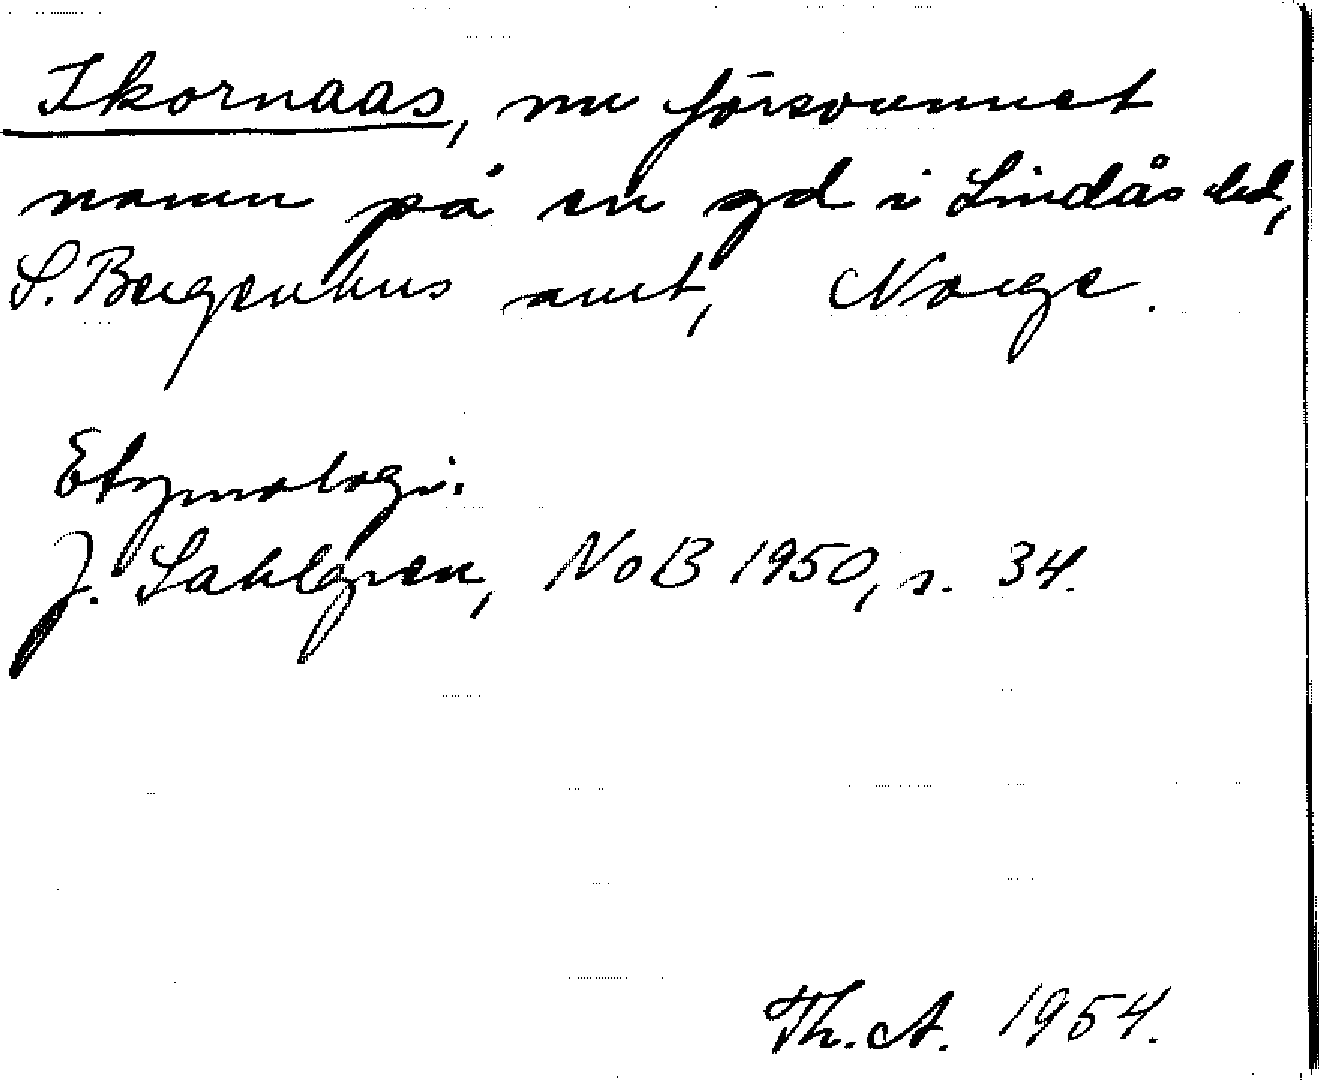 Ikornaas, nu försvunnet
namn på en gd i Lindås hd,
S. Bergenhus amt, Norge.
Etymologi.
J. Sahlgren, NoB 1950, s. 34.
Th. A. 1954.